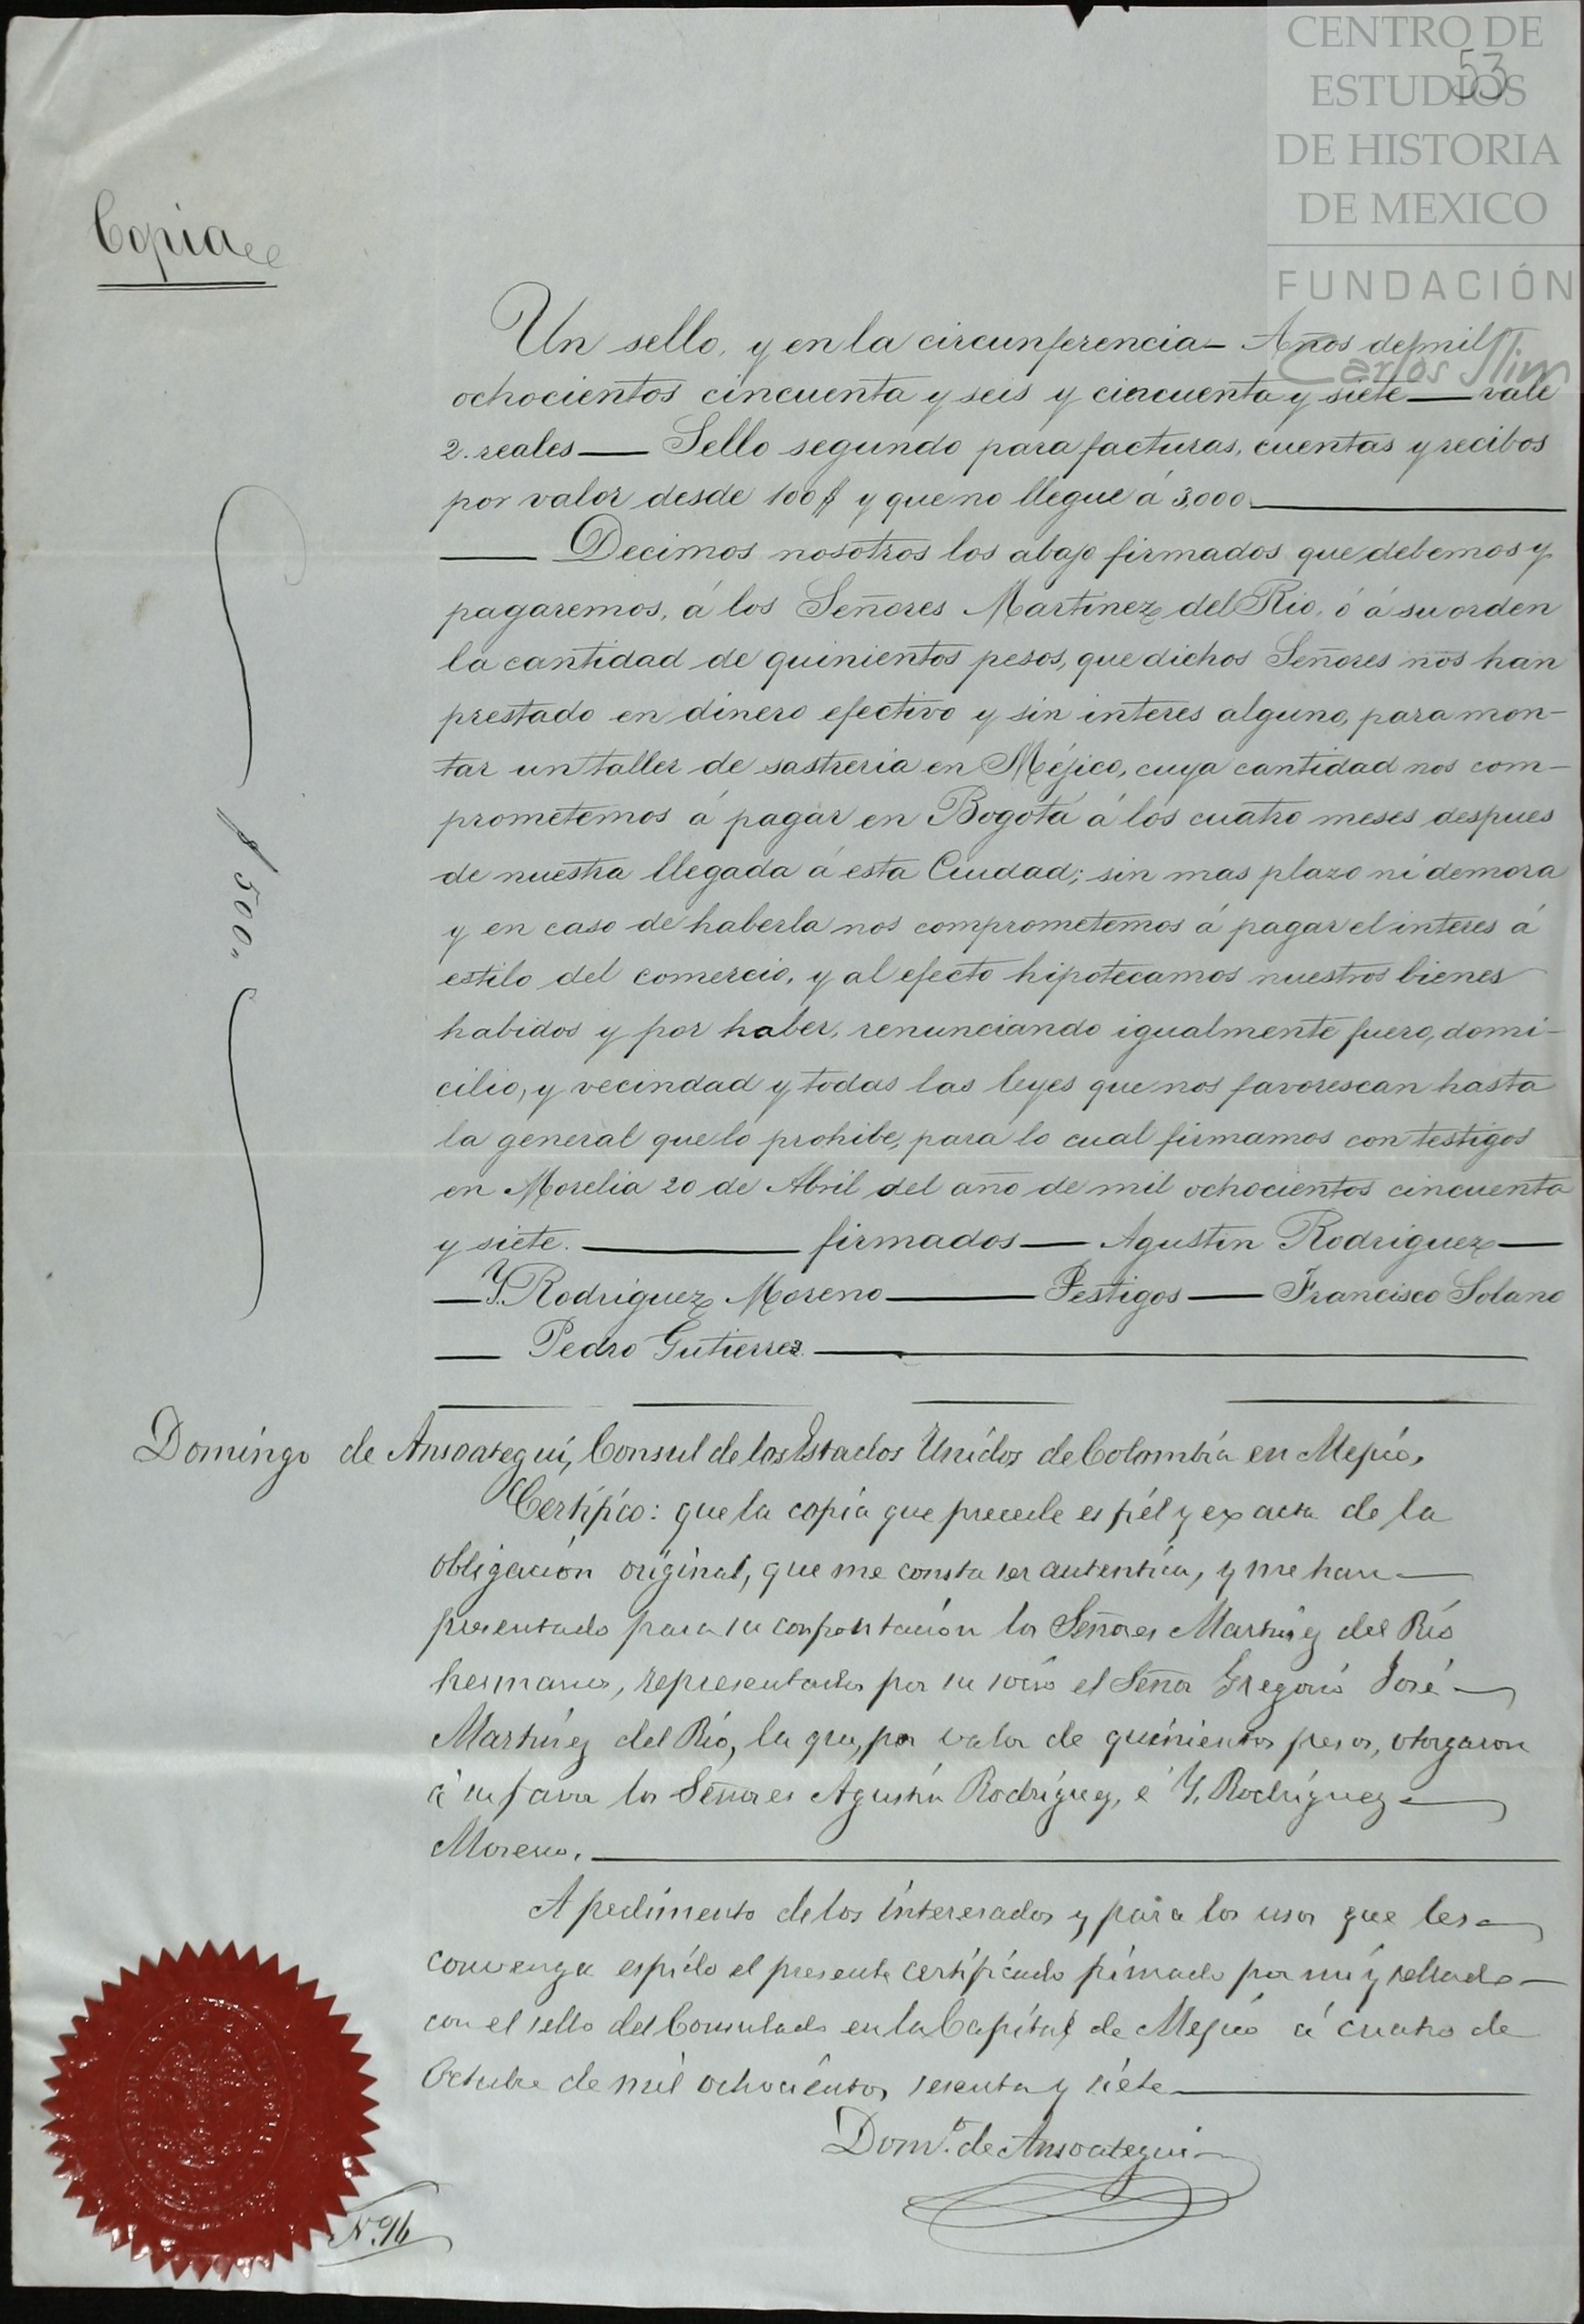 CENTRO DE
ESTUDIOS
DE HISTORIA
DE MEXICO
FUNDACIÓN
Carlos Slim
53
Copia
Un sello, y en la circunferencia — Años de mil
ochocientos cincuenta y seis y cincuenta y siete — vale
2. reales — Sello segundo para facturas, cuentas y recibos
por valor desde 100 $ y que no llegue á 3,000 —
— Decimos nosotros los abajo firmados que debemos y
pagaremos, á los Señores Martinez del Rio, ó á su orden
la cantidad de quinientos pesos, que dichos Señores nos han
prestado en dinero efectivo y sin interes alguno, para mon-
tar un taller de sastreria en Méjico, cuya cantidad nos com-
prometemos á pagar en Bogotá á los cuatro meses despues
de nuestra llegada á esta Ciudad; sin mas plazo ni demora
y en caso de haberla nos comprometemos á pagar el interes á
estilo del comercio, y al efecto hipotecamos nuestros bienes
habidos y por haber, renunciando igualmente fuero, domi-
cilio, y vecindad y todas las leyes que nos favorescan hasta
la general que lo prohibe, para lo cual firmamos con testigos
en Morelia 20 de Abril del año de mil ochocientos cincuenta
y siete. — firmados — Agustin Rodriguez —
— Y. Rodriguez Moreno — Testigos — Francisco Solano
— Pedro Gutierrez —
$ 500.,
Domingo de Ansoategui, Consul de los Estados Unidos de Colombia en Mejico,
Certifico: que la copia que precede es fiél y exacta de la
obligacion original, que me consta ser autentica, y me han —
presentado para su confrontacion los Señores Martinez del Rio
hermanos, representados por su socio el Señor Gregorio José —
Martinez del Rio, la que, por valor de quinientos pesos, otorgaron
á su favor los Señores Agustin Rodriguez, é Y. Rodriguez —
Moreno. —
A pedimento de los interesados y para los usos que les —
convenga espido el presente certificado firmado por mi y sellado —
con el sello del Consulado en la Capital de Mejico á cuatro de
Octubre de mil ochocientos sesenta y siete —
Dom.º de Ansoategui
Nº. 96